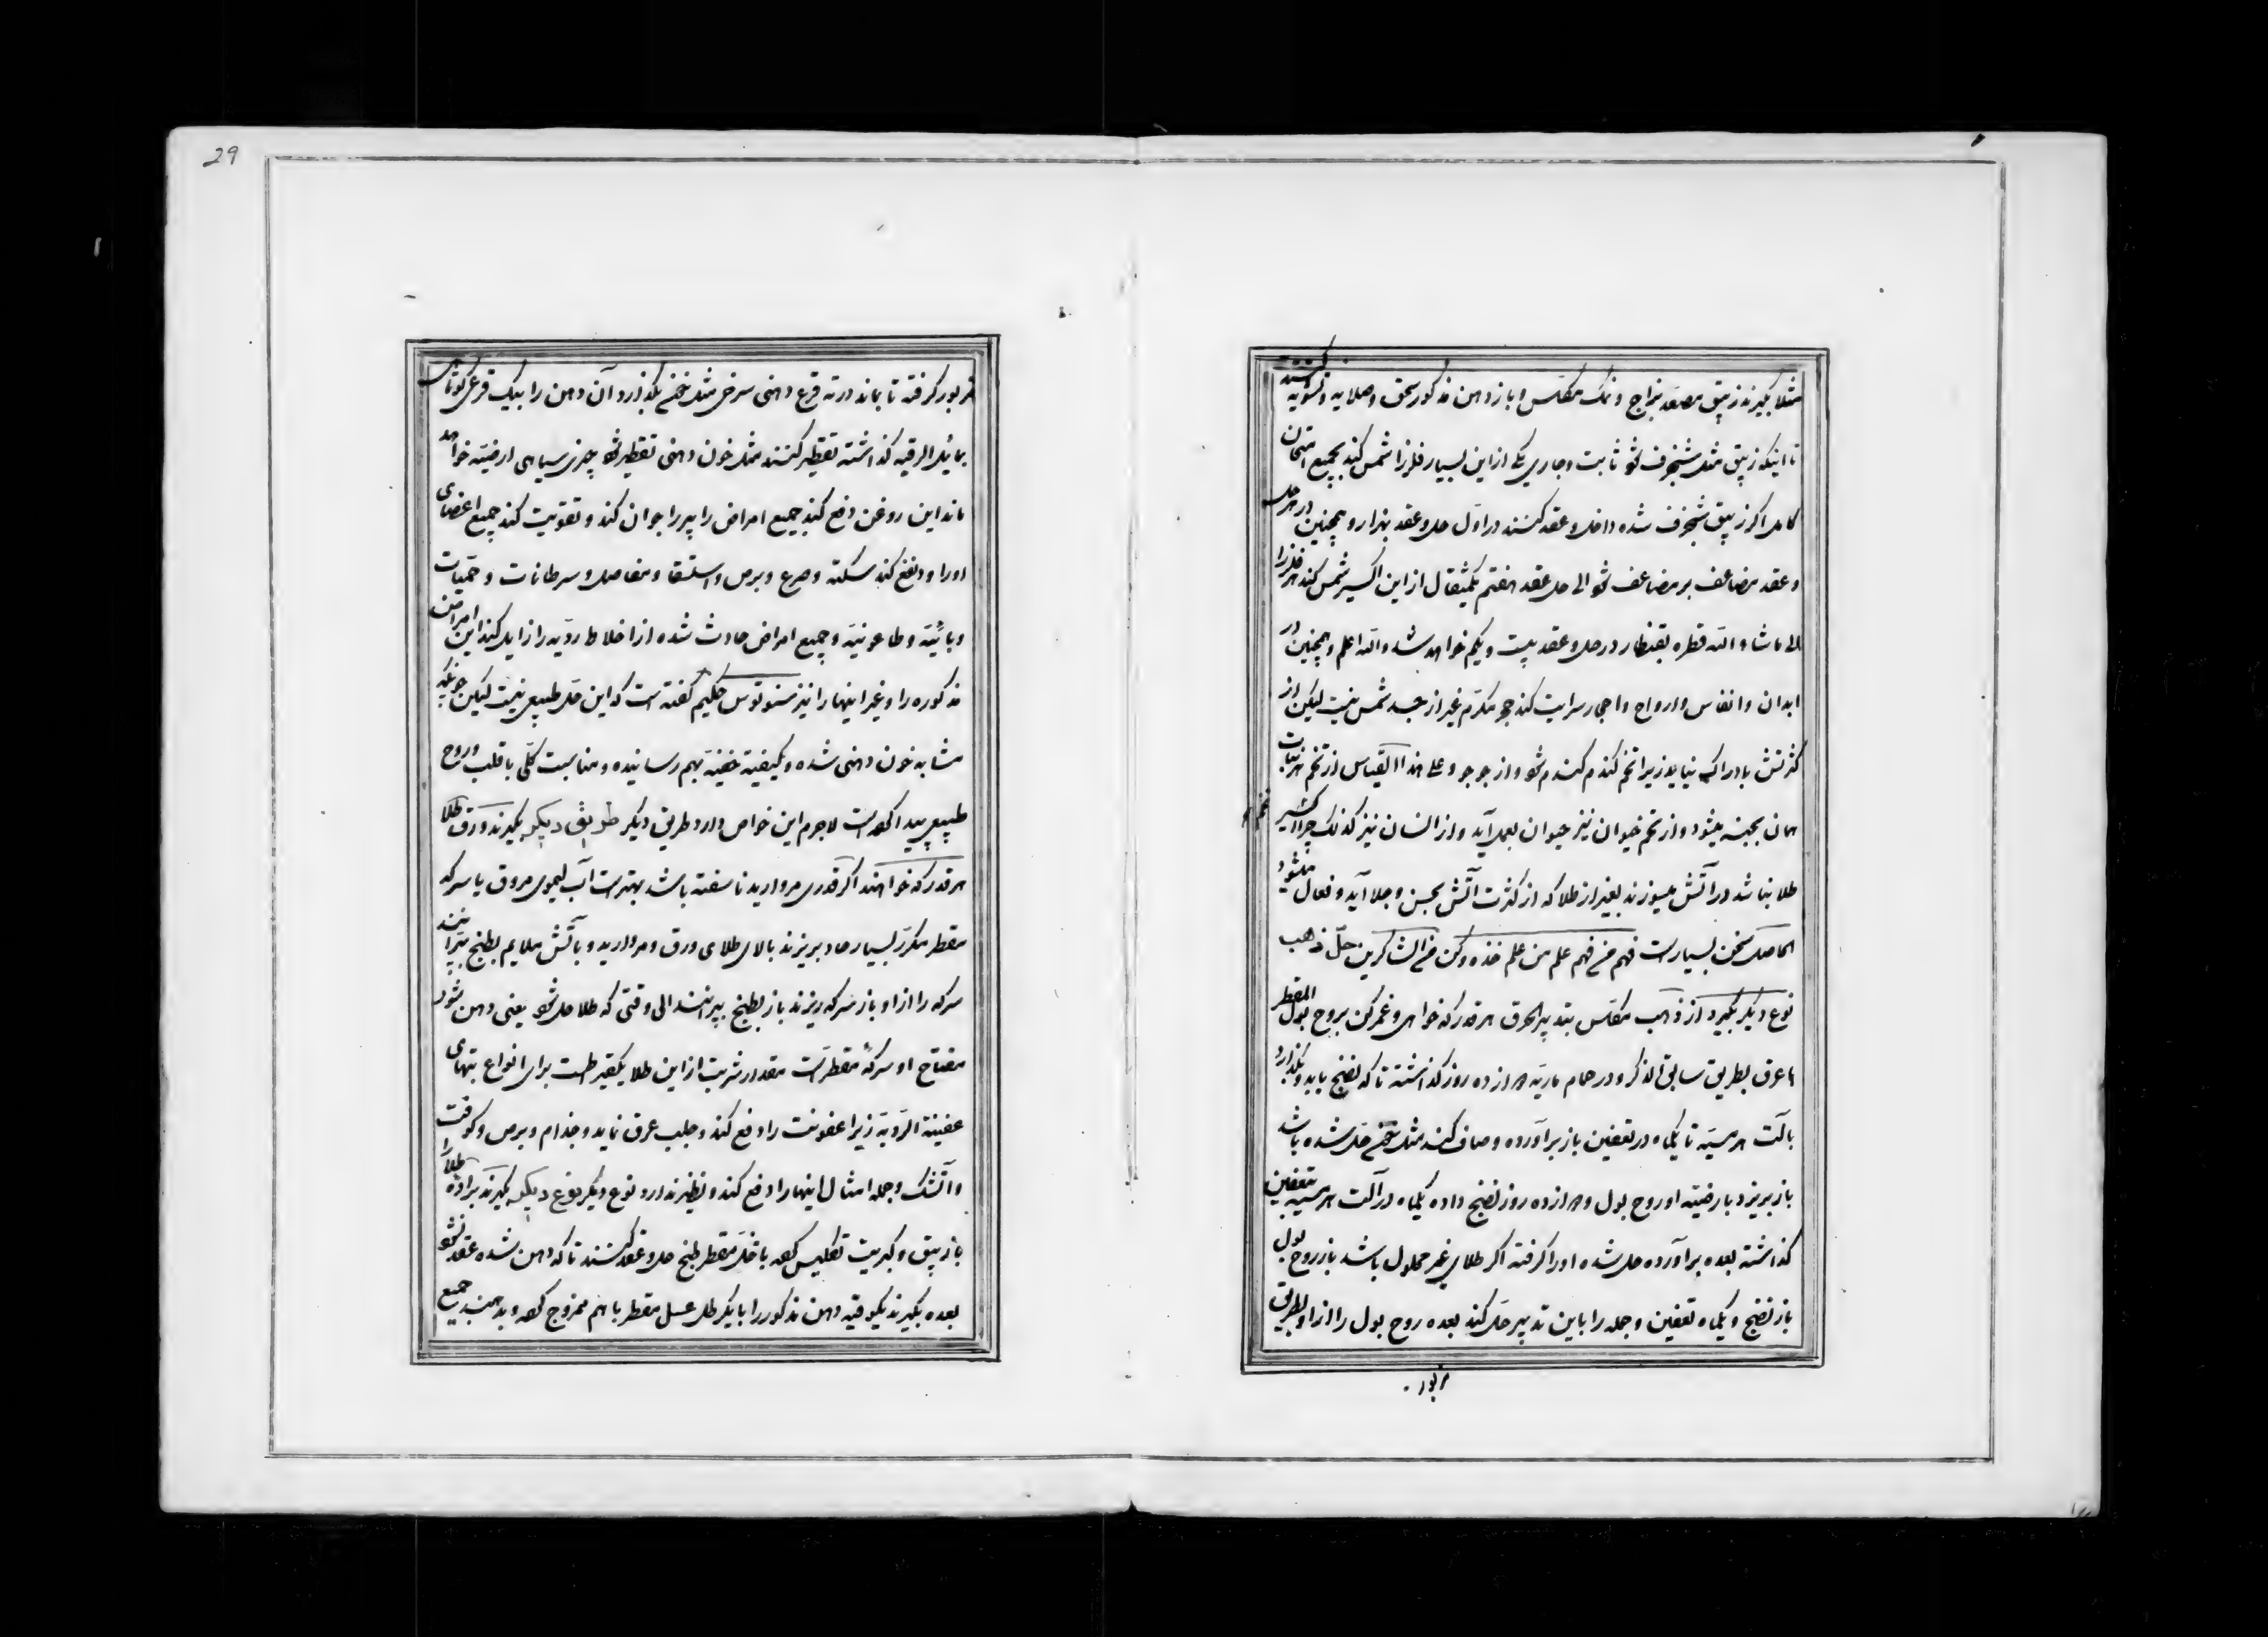 مثلا بگیرند زیبق مصعد بزاج و نمک مکلس و باز دهن مذکور سحق و صلایه و تسویه کنند
تا اینکه زیبق مثل شنجرف شود ثابت و جاری یکی از این بسیار فلز را شمس کند بجمیع امتحان
کامل اگر زیبق شنجرف شده داخل و عقد کنند در اول حل و عقد بهزار و همچنین در هر حل
و عقد مضاعف بر مضاعف شود الی حل عقد هفتم یکمثقال از این اکسیر شمس کند هر فلز را
الی ما شاء الله قطره بقنطار در حل و عقد بیست و یکم خواهد شد والله اعلم و همچنین در
ابدان و انفاس و ارواح و احجار سرایت کند حجر مکرم غیر از جسد شمس نیست لیکن از
کثرتش بادراک نیاید زیرا تخم کندم کندم شود و از جو جو و علی هذا القیاس از تخم هر نبات
همان بجنسه میشود و از تخم حیوان نیز حیوان بعمل آید و از انسان نیز کذلک چرا اکسیر
طلا نباشد در آتش میسوزند بغیر از طلا که از کثرت آتش بحسن و جلا آید و فعال میشود
الحاصل سخن بسیار است فهم من فهم علم من علم خذه و کن من الشاکرین حل ذهب
نوع دیگر بگیرد از ذهب مکلس بتدبیر الحرق هر قدر که خواهی و غمر کن بروح بول المقطر
با عرق بطریق سابق الذکر و در حمام ماریه دوازده روز گذاشته تا که نضج یابد و بگذارد
بآلت هرمسیه تا یکماه در تعفین باز برآورده و صاف کنند مثل خون حل شده باشد
باز بریزد بارضیته او روح بول و دوازده روز نضج داده یکماه در آلت هرمسیه بتعفین
گذاشته بعده برآورده حل شده او را گرفته اگر طلای غیر محلول باشد باز روح بول
باز نضج و یکماه تعفین و جمله را باین تدبیر حل کند بعده روح بول را از او بطریق
مزبور
29
مزبور گرفته تا بماند در ته قرع دهنی سرخی مثل خون بگذارد آن دهن را بیک قرعی کوتاهی
بمایل الرقبه گذاشته تقطیر کنند مثل خون دهنی تقطیر شود چیزی سیاهی ارضیته خواهد
ماند این روغن دفع کند جمیع امراض را پیر را جوان کند و تقویت کند جمیع اعضای
او را و دفع کند سکته و صرع و برص و استسقا و مفاصل و سرطانات و حمیات
وبائیه و طاعونیه و جمیع امراض حادث شده از اخلاط ردیه را زایل کند این امراض
مذکوره را و غیر اینها را نیز حکیم گفته است که این حل طبیعی نیست لیکن چونکه
مشابه خون دهنی شده و بکیفیة خفیة بهم رسانیده و مناسبت کلی با قلب و روح
طبیعی پیدا کرده است لاجرم این خواص دارد طریق دیگر طریق دیگر بگیرند ورق طلا
هر قدر که خواهند اگر قدری مروارید ناسفته باشد بهتر است آب لیموی مروق یا سرکه
مقطر مکرر بسیار حاد بریزند بالای طلای ورق و مروارید و بآتش ملایم بطبخ بپرانند
سرکه را از او باز سرکه ریزند باز بطبخ بپرانند الی وقتی که طلا حل شود یعنی دهن شود
مفتاح او سرکهٔ مقطر است مقدار شربت از این طلا یکقیراطست برای انواع تبهای
عفینة الردیه زیرا عفونت را دفع کند و جلب عرق نماید و جذام و برص و کوفت
و آتشک و جمله امثال اینها را دفع کند و نظیر ندارد نوع دیگر نوع دیگر بگیرند براده طلا را
با زیبق و کبریت تکلیس کرده با خل مقطر طبخ حل و عقد کنند تا که دهن شده عقد نشود
بعده بگیرند یکوقیه دهن مذکور را با یکرطل عسل مقطر با هم ممزوج کرده و بدهند جمیع